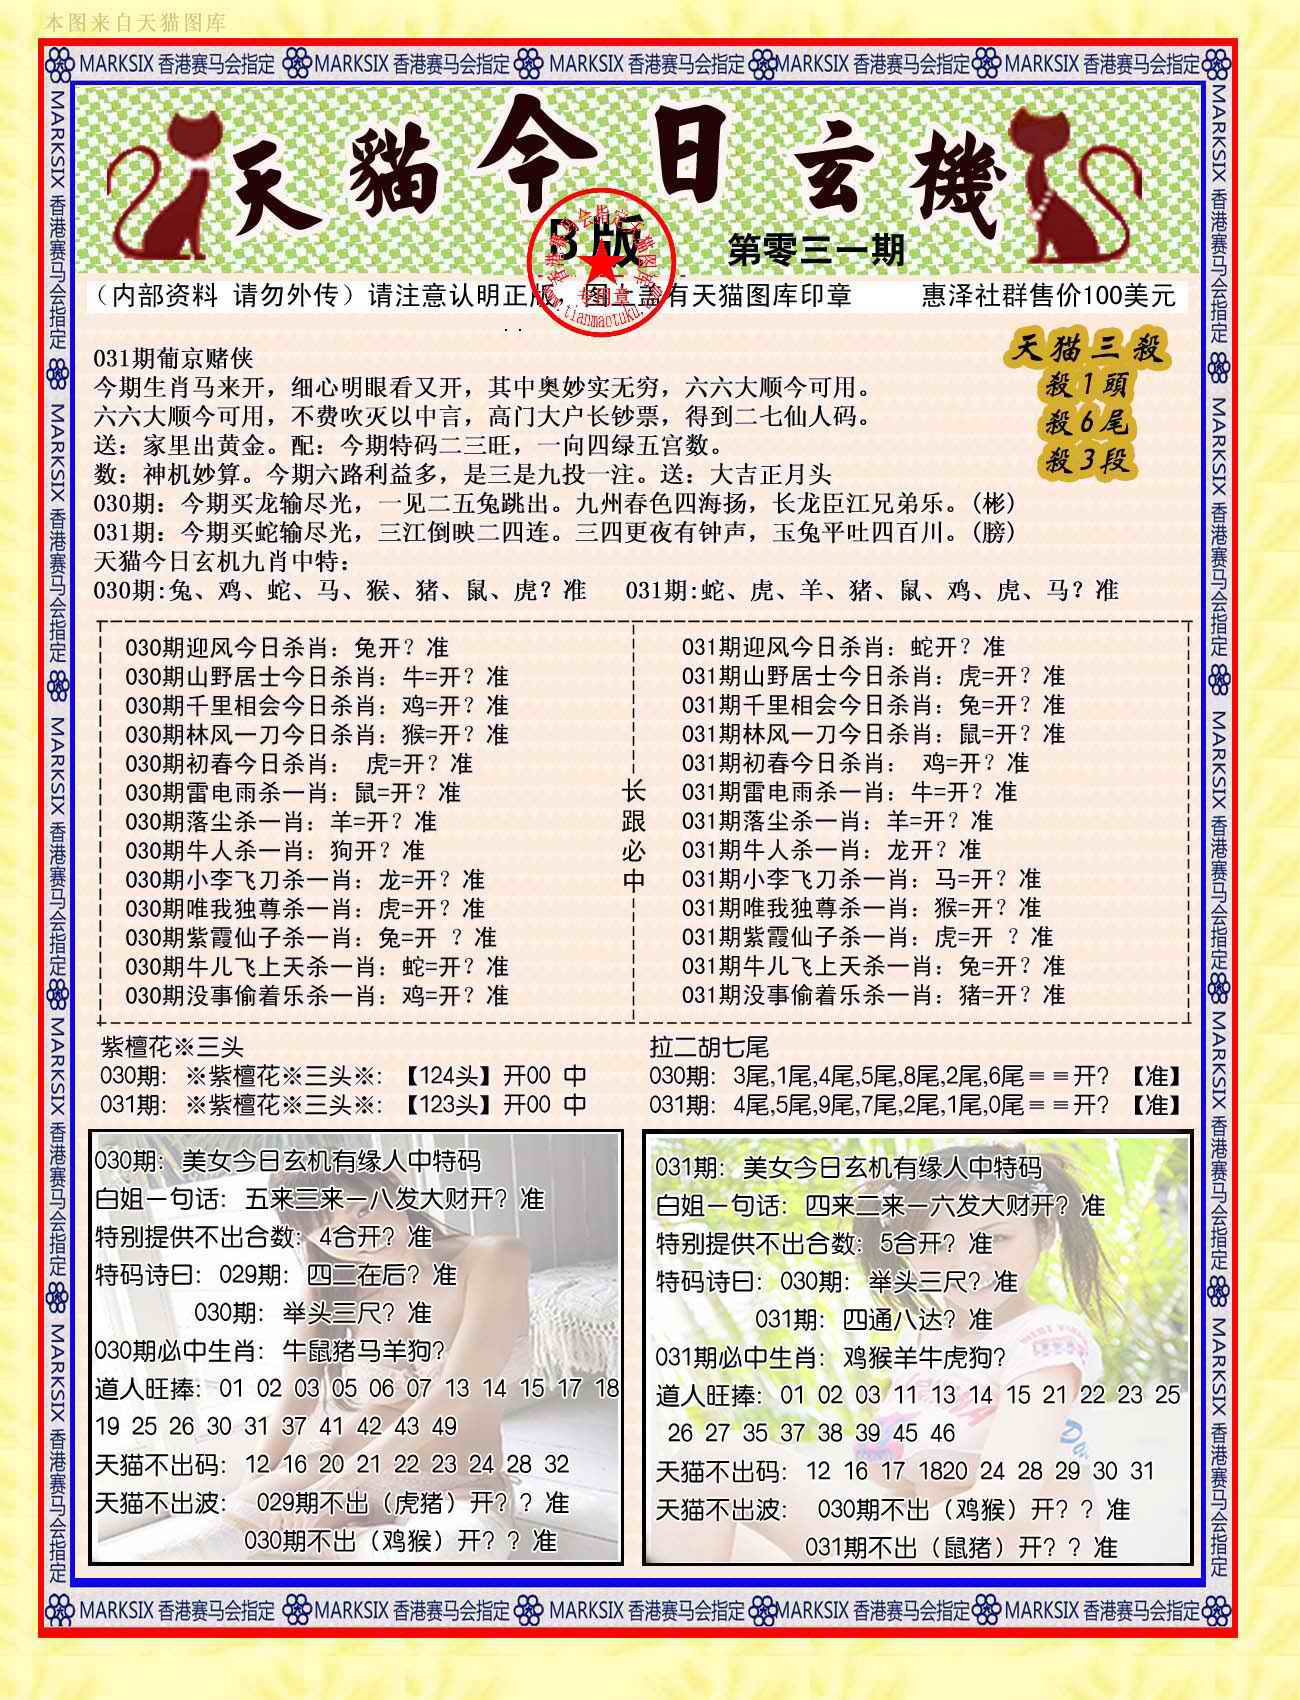 本图来自天猫图库
MARKSIX 香港赛马会指定 MARKSIX 香港赛马会指定 MARKSIX 香港赛马会指定 MARKSIX 香港赛马会指定 MARKSIX 香港赛马会指定
天貓今日玄機
B版
第零三一期
（内部资料 请勿外传）请注意认明正版，图上盖有天猫图库印章 惠泽社群售价100美元
香港赛马会指定天猫图库
专用章
www.tianmaotuku.com
天猫三殺
殺1頭
殺6尾
殺3段
031期葡京赌侠
今期生肖马来开，细心明眼看又开，其中奥妙实无穷，六六大顺今可用。
六六大顺今可用，不费吹灭以中言，高门大户长钞票，得到二七仙人码。
送：家里出黄金。配：今期特码二三旺，一向四绿五宫数。
数：神机妙算。今期六路利益多，是三是九投一注。送：大吉正月头
030期：今期买龙输尽光，一见二五兔跳出。九州春色四海扬，长龙臣江兄弟乐。(彬)
031期：今期买蛇输尽光，三江倒映二四连。三四更夜有钟声，玉兔平吐四百川。(膀)
天猫今日玄机九肖中特：
030期:兔、鸡、蛇、马、猴、猪、鼠、虎？准 031期:蛇、虎、羊、猪、鼠、鸡、虎、马？准
030期迎风今日杀肖：兔开？准
030期山野居士今日杀肖：牛=开？准
030期千里相会今日杀肖：鸡=开？准
030期林风一刀今日杀肖：猴=开？准
030期初春今日杀肖： 虎=开？准
030期雷电雨杀一肖：鼠=开？准
030期落尘杀一肖：羊=开？准
030期牛人杀一肖：狗开？准
030期小李飞刀杀一肖：龙=开？准
030期唯我独尊杀一肖：虎=开？准
030期紫霞仙子杀一肖：兔=开 ？准
030期牛儿飞上天杀一肖：蛇=开？准
030期没事偷着乐杀一肖：鸡=开？准
长跟必中
031期迎风今日杀肖：蛇开？准
031期山野居士今日杀肖：虎=开？准
031期千里相会今日杀肖：兔=开？准
031期林风一刀今日杀肖：鼠=开？准
031期初春今日杀肖： 鸡=开？准
031期雷电雨杀一肖：牛=开？准
031期落尘杀一肖：羊=开？准
031期牛人杀一肖：龙开？准
031期小李飞刀杀一肖：马=开？准
031期唯我独尊杀一肖：猴=开？准
031期紫霞仙子杀一肖：虎=开 ？准
031期牛儿飞上天杀一肖：兔=开？准
031期没事偷着乐杀一肖：猪=开？准
紫檀花※三头
030期：※紫檀花※三头※：【124头】开00 中
031期：※紫檀花※三头※：【123头】开00 中
拉二胡七尾
030期：3尾,1尾,4尾,5尾,8尾,2尾,6尾＝＝开？【准】
031期：4尾,5尾,9尾,7尾,2尾,1尾,0尾＝＝开？【准】
030期：美女今日玄机有缘人中特码
白姐一句话：五来三来一八发大财开？准
特别提供不出合数：4合开？准
特码诗曰：029期：四二在后？准
030期：举头三尺？准
030期必中生肖：牛鼠猪马羊狗？
道人旺捧：01 02 03 05 06 07 13 14 15 17 18
19 25 26 30 31 37 41 42 43 49
天猫不出码：12 16 20 21 22 23 24 28 32
天猫不出波： 029期不出（虎猪）开？？准
030期不出（鸡猴）开？？准
031期：美女今日玄机有缘人中特码
白姐一句话：四来二来一六发大财开？准
特别提供不出合数：5合开？准
特码诗曰：030期：举头三尺？准
031期：四通八达？准
031期必中生肖：鸡猴羊牛虎狗？
道人旺捧：01 02 03 11 13 14 15 21 22 23 25
26 27 35 37 38 39 45 46
天猫不出码：12 16 17 1820 24 28 29 30 31
天猫不出波： 030期不出（鸡猴）开？？准
031期不出（鼠猪）开？？准
MARKSIX 香港赛马会指定 MARKSIX 香港赛马会指定 MARKSIX 香港赛马会指定 MARKSIX 香港赛马会指定 MARKSIX 香港赛马会指定
MARKSIX 香港赛马会指定 MARKSIX 香港赛马会指定 MARKSIX 香港赛马会指定 MARKSIX 香港赛马会指定 MARKSIX 香港赛马会指定
MARKSIX 香港赛马会指定 MARKSIX 香港赛马会指定 MARKSIX 香港赛马会指定 MARKSIX 香港赛马会指定 MARKSIX 香港赛马会指定